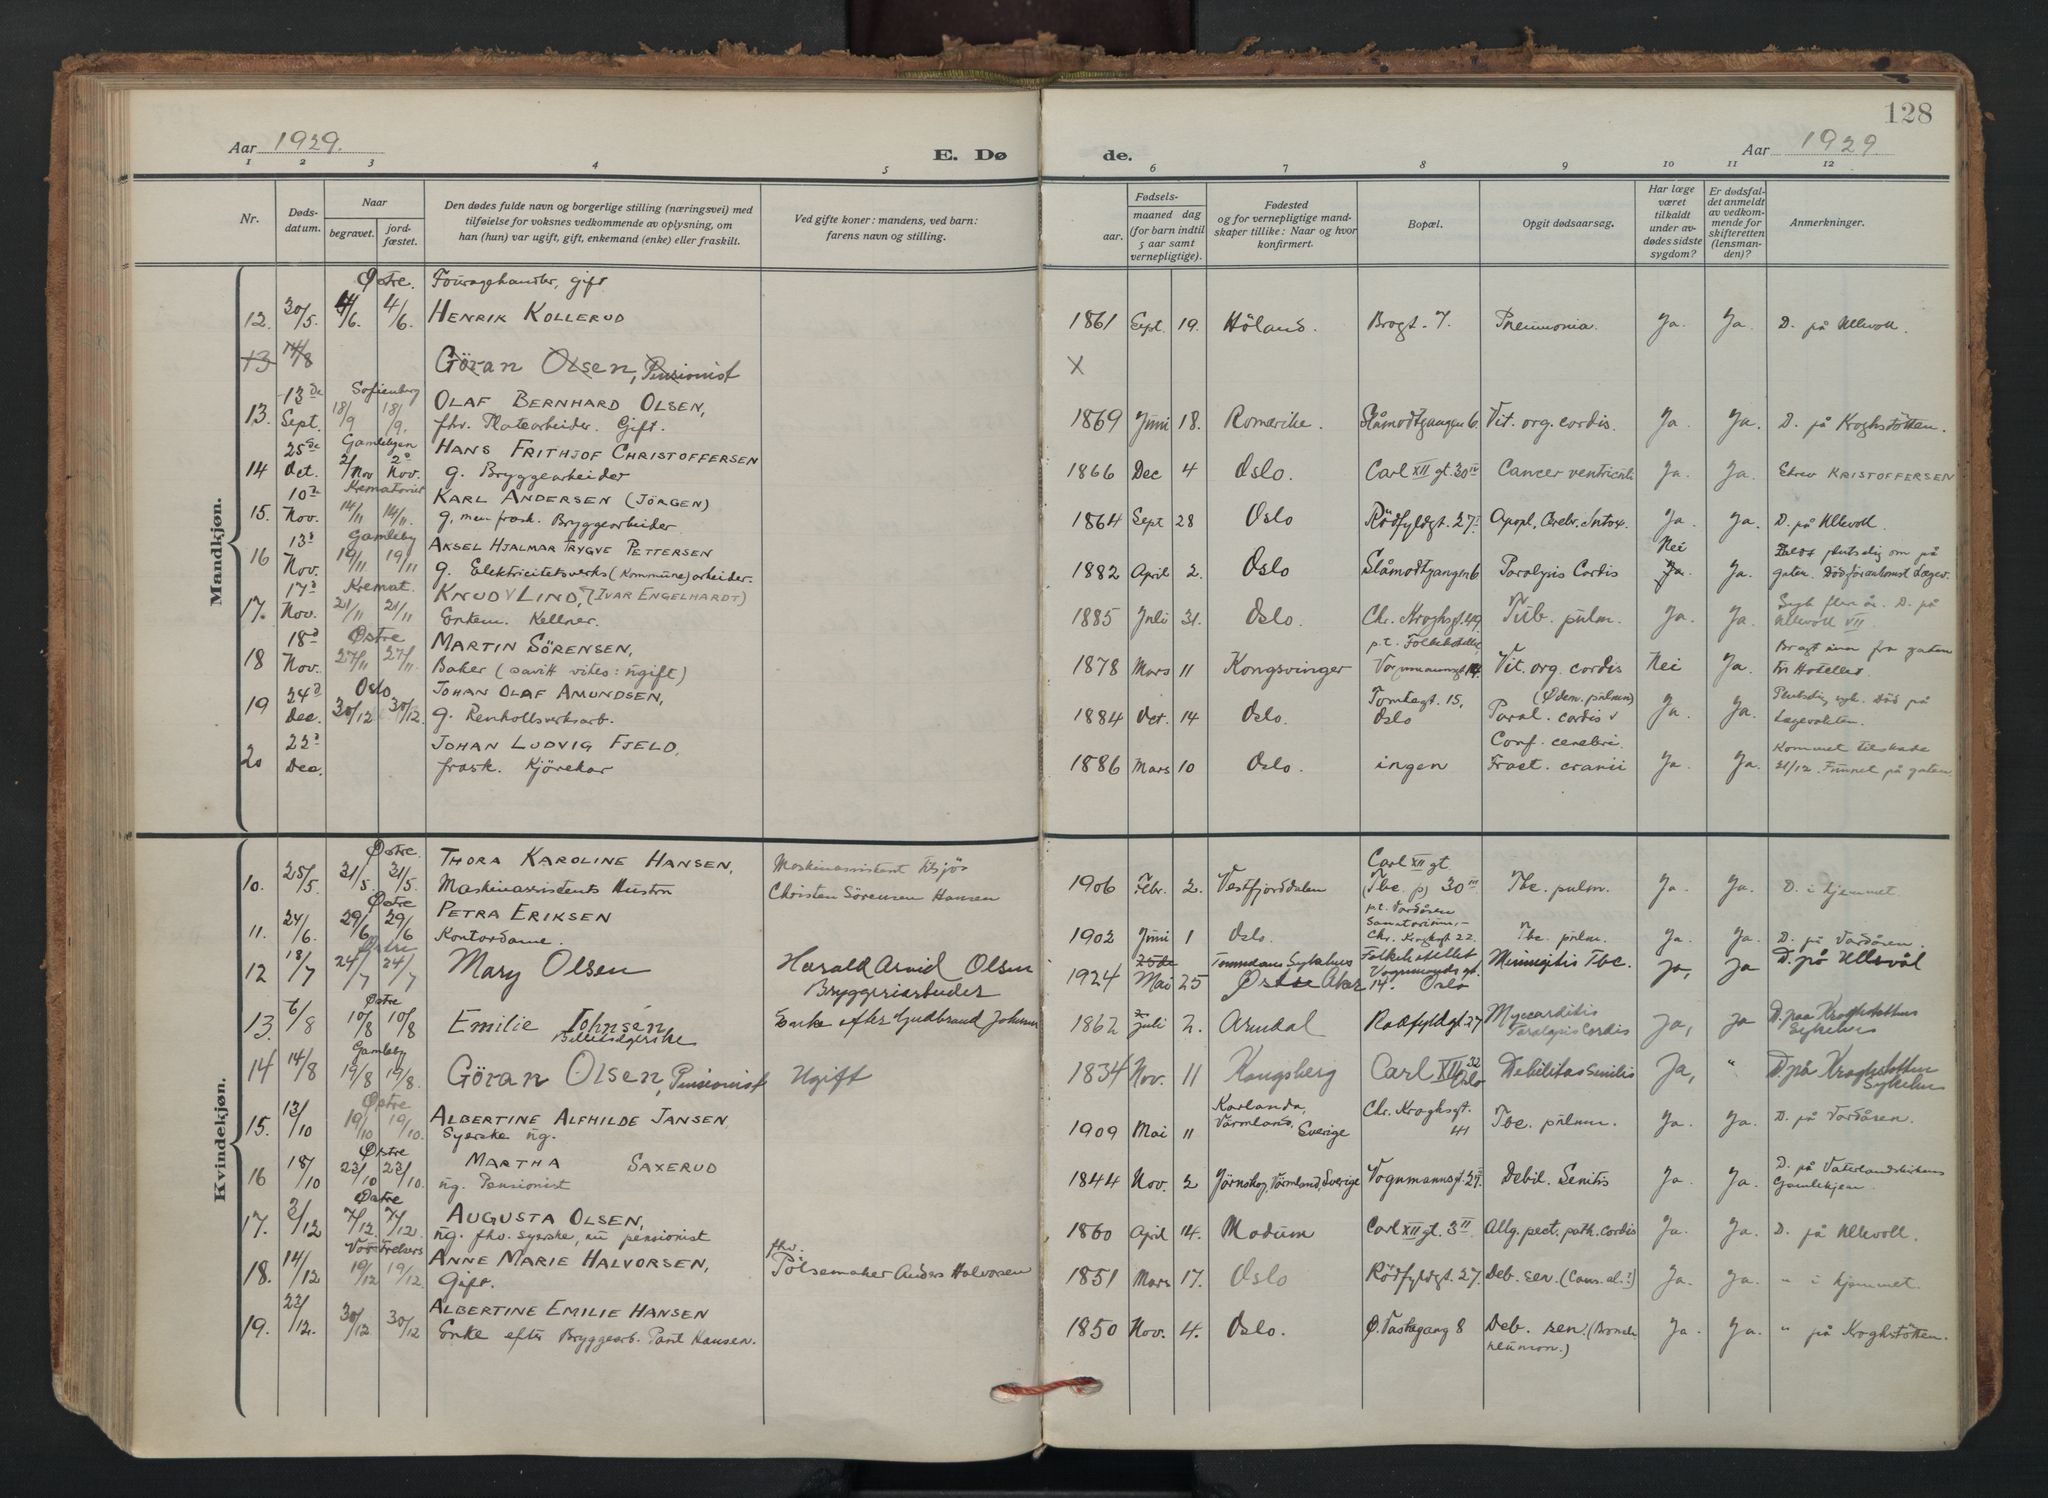 128
Aar 1929.
E. Dø
de.
Aar 1929
1 2 3 4 5 6 7 8 9 10 11 12
Nr.
Døds-
datum.
Naar
begravet.
jord-
fæstet.
Den dødes fulde navn og borgerlige stilling (næringsvei) med
tilføielse for voksnes vedkommende av oplysning, om
han (hun) var ugift, gift, enkemand (enke) eller fraskilt.
Ved gifte koner: mandens, ved barn:
farens navn og stilling.
Fødsels-
aar.
maaned dag
(for barn indtil
5 aar samt
vernepligtige).
Fødested
og for vernepligtige mand-
skaper tillike: Naar og hvor
konfirmert.
Bopæl.
Opgit dødsaarsag.
Har læge
været
tilkaldt
under av-
dødes sidste
sygdom?
Er dødsfal-
det anmeldt
av vedkom-
mende for
skifteretten
(lensman-
den)?
Anmerkninger.
Mandkjøn.
Østre. Fouragehandler, gift
12. 30/5. 4/6. 4/6. HENRIK KOLLERUD 1861 Sept. 19. Höland. Brogt. 7. Pneumonia. Ja. Ja. D. på Ullevoll.
13 14/8 Göran Olsen, Pensionist X
13de Sofienberg OLAF BERNHARD OLSEN,
13. Sept. 18/9 18/9. fhv. Platearbeider. Gift. 1869 Juni 18. Romerike. Slåmodtgangen 6. Vit. org. cordis. Ja. Ja. D. på Kroghstötten.
25de Gamlebyen HANS FRITHJOF CHRISTOFFERSEN
14 Oct. 2/Nov Nov. g. Bryggearbeider 1866 Dec 4 Oslo. Carl XII gt. 30 IV Cancer ventriculi Ja. Ja. Skrev KRISTOFFERSEN
10d Krematoriet KARL ANDERSEN (JÖRGEN)
15. Nov. 14/11 14/11. g. men frask. Bryggearbeider 1864 Sept 28 Oslo Rödfyldgt. 27 Apopl. Cerebr. Intox. Ja. Ja. D. på Ullevoll
13d Gamleby AKSEL HJALMAR TRYGVE PETTERSEN Nei
16 Nov. 19/11 19/11 g. Elektricitetsverks (Kommune) arbeider. 1882 April 2. Oslo Slåmodtgangen 6 Paralysis Cordis Ja. Ja. Faldt plutselig om på
gaten. Död før ankomst Lægev.
17d Kremat. KNUD LIND, (IVAR ENGELHARDT)
17. Nov. 21/11 21/11. Enkem. Kellner. 1885 Juli 31. Oslo. Chr. Kroghsgt. 49. Tub. pulm. Ja. Ja. Syk flere år. D. på
Ullevoll VII
18d Östre MARTIN SÖRENSEN, p.t. Folkehotellet,
18 Nov. 27/11 27/11. Baker (savik vites: ugift) 1878 Mars 11 Kongsvinger Vognmannsgt. 14. Vit. org. cordis Nei Ja. Bragt inn fra gaten
til Hotellet
24d Oslo JOHAN OLAF AMUNDSEN, Tomtegt. 15, (Ødem. pulmm)
19 Dec. 30/12 30/12. g. Renholdsverksarb. 1884 Oct. 14 Oslo. Oslo Paral. cordis Ja. Ja. Plutselig syk. Död på
Lægevakten.
22d JOHAN LUDVIG FJELD. Conf. cerebri.
20 Dec. frask. Kjörekar 1886 Mars 10 Oslo. ingen Fract. cranii Ja. Ja. Kommet tilskade
21/12. Funnet på gaten
Kvindekjøn.
Østre. THORA KAROLINE HANSEN, Maskinassistent
10. 25/5. 31/5. 31/5. Maskinassistents Hustru Christen Sörensen Hansen 1906 Febr. 2. Vestfjorddalen Carl XII gt. (Tbc. p) 30 III Tbc. pulm. Ja. Ja. D. i hjemmet.
Östre PETRA ERIKSEN p.t. Vardåsen
Sanatorium.
11. 24/6. 29/6 29/6 Kontordame. 1902 Juni 1 Oslo. Chr. Kroghsgt 22. Tbc. pulm. Ja. Ja. D. på Vardåsen.
Östre
12 18/7 24/7 24/7 Mary Olsen Harald Arvid Olsen
Bryggeriarbeider 1924 Mai 25 Østre Aker Folkehotellet
Vognmannsgt.
14. Oslo Miningitis Tbc. Ja, Ja D. på Ullevål
Östre
13. 6/8 10/8 10/8 Emilie Johnsen Enke efter Gudbrand Johnsen 1862 Juli 2. Arendal Rodfyldgt 27 Myocarditis
Paralysis Cordis Ja, Ja D. paa Kroghstøtten
Sykehus
Gamleby
14 14/8 19/8 19/8. Göran Olsen, Pensionist Ugift 1834 Nov. 11 Kongsberg Carl XII 32
Oslo Debilitas Senilis Ja, " D på Kroghstøtten
Sykehus
Östre ALBERTINE ALFHILDE JANSEN, Karlanda,
15. 13/10 19/10 19/10. Syerske ug. 1909 Mai 11 Värmland, Sverige Chr. Kroghsgt.
41 Tbc. pulm. Ja. Ja. D. på Vardåsen.
Östre MARTHA SAXERUD
16 18/10 22/10 22/10. ug. Pensionist 1844 Nov. 2 Järnskog, Värmland, Sverige Vognmannsgt. 27 Debil. Senilis Ja. Ja. D. på Vaterlandskirkens
Gamlehjem
Østre AUGUSTA OLSEN,
17. 2/12 7/12. 7/12. ug. fhv. syerske, nu pensionist 1860 April 14. Modum Carl XII gt. 3 II Allg. pect. path. cordis Ja. Ja. D. på Ullevoll.
Vår Frelsers ANNE MARIE HALVORSEN, fhv.
18. 14/12 19/12 19/12. Gift. Pölsemaker Anders Halvorsen 1851 Mars 17. Oslo Rödfyldgt. 27. Deb. sen. (Canc. al.?) Ja. Ja. " i hjemmet.
ALBERTINE EMILIE HANSEN
19. 22/12. 30/12 30/12 Enke efter Bryggearb. Paul Hansen. 1850 Nov. 4. Oslo. Ö. Vaskegang 8 Deb. sen. (Bronch.
pneumon.) Ja. Ja. " på Kroghstötten.